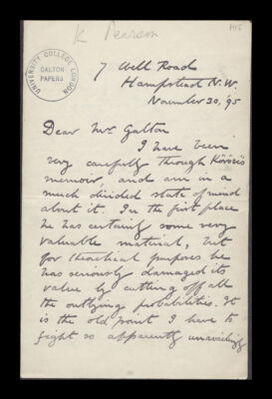 K Pearson
UNIVERSITY COLLEGE LONDON
GALTON
PAPERS
7 Well Road
Hampstead N.W.
November 30, 95
Dear Mr Galton
I have been
very carefully through Körösi's
memoir, and am in a
much divided state of mind
about it. In the first place
he has certainly some very
valuable material, but
for theoretical purposes he
has seriously damaged its
value by cutting off all
the outlying probabilities. It
is the old point I have to
fight so apparently unavailingly